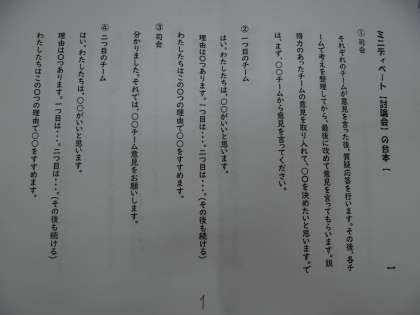 ミニディベート【討論会】の台本 1
①司会
それぞれのチームが意見を言った後、質疑応答を行います。その後、各チ
ームで考えを整理してから、最後に改めて意見を言ってもらいます。説
得力のあったチームの意見を取り入れて、〇〇を決めたいと思います。で
は、まず、〇〇チームから意見を言ってください。
②一つ目のチーム
はい。わたしたちは、〇〇がいいと思います。
理由は〇つあります。一つ目は・・・。二つ目は・・・。(その後も続ける)
わたしたちはこの〇つの理由で〇〇をすすめます。
③司会
分かりました。それでは、〇〇チーム意見をお願いします。
④二つ目のチーム
はい。わたしたちは、〇〇がいいと思います。
理由は〇つあります。一つ目は・・・。二つ目は・・・。(その後も続ける)
わたしたちはこの〇つの理由で〇〇をすすめます。
1